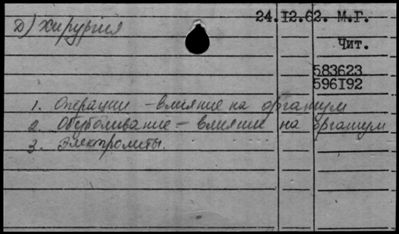 Д) Хирургия
24.12.62. М.Г.
Чит.
583623
596192
1. Операции - влияние на организм
2. Обезболивание - влияние на организм
3. Электролиты.